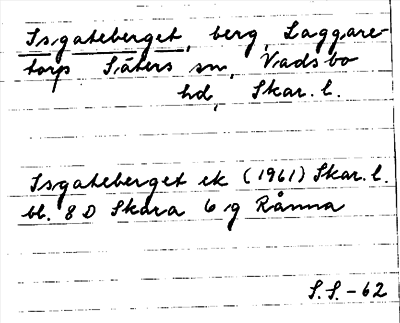 Isgateberget, berg, Laggare-
torp Säters sn, Vadsbo
hd, Skar. l.
Isgateberget ek (1961) Skar. l.
bl. 8 D Skara 6 g Rånna
S.S.-62